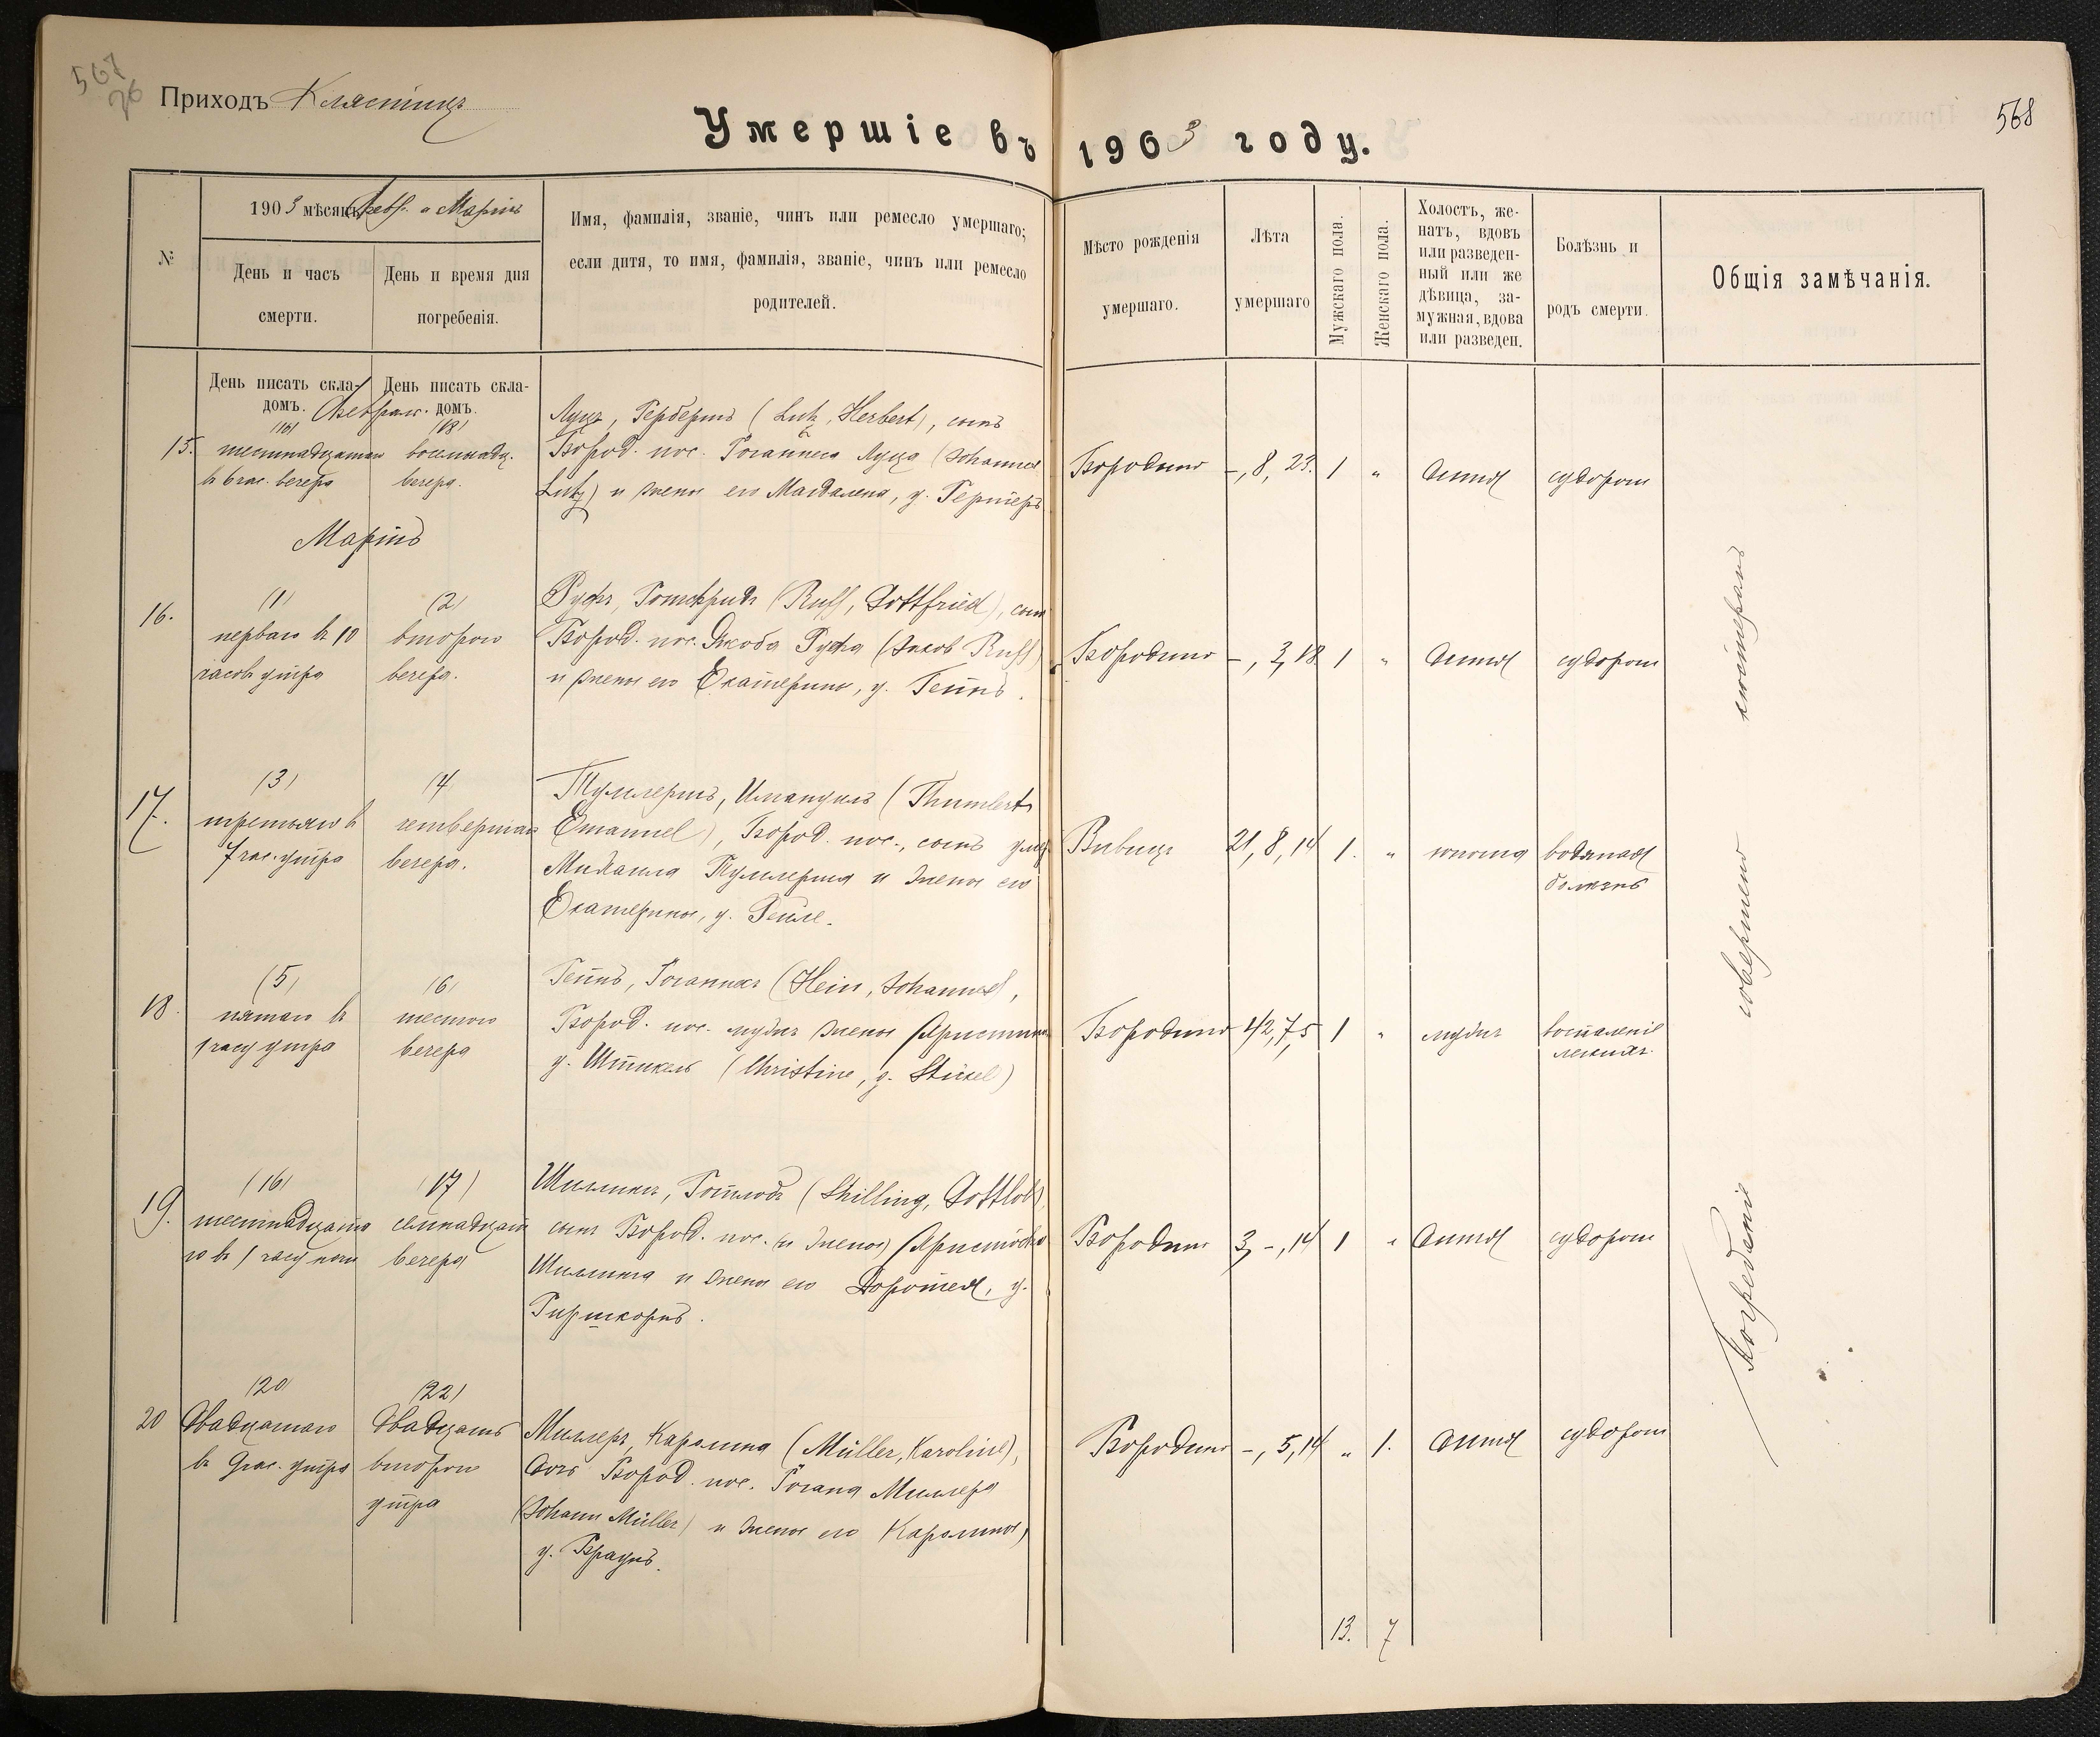 567
76
Приходъ Клястицъ
Умершіе въ 1903 году.
568
№
1903 мѣсяцъ Февр. и Мартъ
День и часъ
смерти.
День и время дня
погребенія.
Имя, фамилія, званіе, чинъ или ремесло умершаго;
если дитя, то имя, фамилія, званіе, чинъ или ремесло
родителей.
Мѣсто рожденія
умершаго.
Лѣта
умершаго
Мужскаго пола.
Женскаго пола.
Холостъ, же-
натъ, вдовъ
или разведен-
ный или же
дѣвица, за-
мужная, вдова
или разведен.
Болѣзнь и
родъ смерти.
Общія замѣчанія.
День писать скла-
домъ.
День писать скла-
домъ.
Феврал.
15.
(16)
шестнадцатаго
в 6 час. вечера
(18)
восемнадц.
вечера.
Луцъ, Гербертъ (Lutz, Herbert), сынъ
Бород. пос. Іоганнеса Луца (Johannes
Lutz) и жены его Магдалена, у. Гертеръ
Бородино
-, 8, 23.
1
"
дитя
судороги
Мартъ
16.
(1)
перваго в 10
часовъ утра
(2)
второго
вечера.
Руфъ, Готфридъ (Ruff, Gottfried), сынъ
Бород. пос. Якоба Руфа (Jacob Ruff)
и жены его Екатерины, у. Гейнъ.
Бородино
-, 3, 18
1
"
дитя
судороги
17.
(3)
третьяго в
7 час. утра
(4)
четвертаго
вечера.
Тумлертъ, Имануилъ (Thumlert,
Emanuel), Бород. пос., сынъ умер.
Михаила Тумлерта и жены его
Екатерины, у. Рейле.
21, 8, 14
1.
"
юноша
водяная
болѣзнь
18.
(5)
пятаго в
1 часу утра
(6)
шестого
вечера
Гейнъ, Іоганнесъ (Hein, Johannes),
Бород. пос. мужъ жены Христины
у. Штикель (Christine, g. Stickel)
Бородино
42, 7, 5
1
"
мужъ
воспаленіе
легкихъ.
19.
(16)
шестнадцата
го в 1 часу ночи
(17)
семнадцат
вечера
Шиллингъ, Готлобъ (Schilling, Gottlob)
сынъ Бород. пос. (и жены) Христофа
Шиллинга и жены его Доротея, у.
Гиршкорнъ.
Бородино
3, -, 14
1
"
дитя
судороги
20
(20)
двадцатаго
в 9 час. утра
(22)
двадцать
второго
утра
Миллеръ, Каролина (Müller, Karoline),
дочь Бород. пос. Іогана Миллера
(Johann Müller) и жены его Каролины,
у. Браунъ.
Бородино
-, 5, 14
"
1.
дитя
судороги
13.
7
Погребеніе совершено